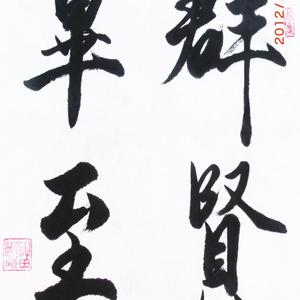 群賢
畢至
2012/